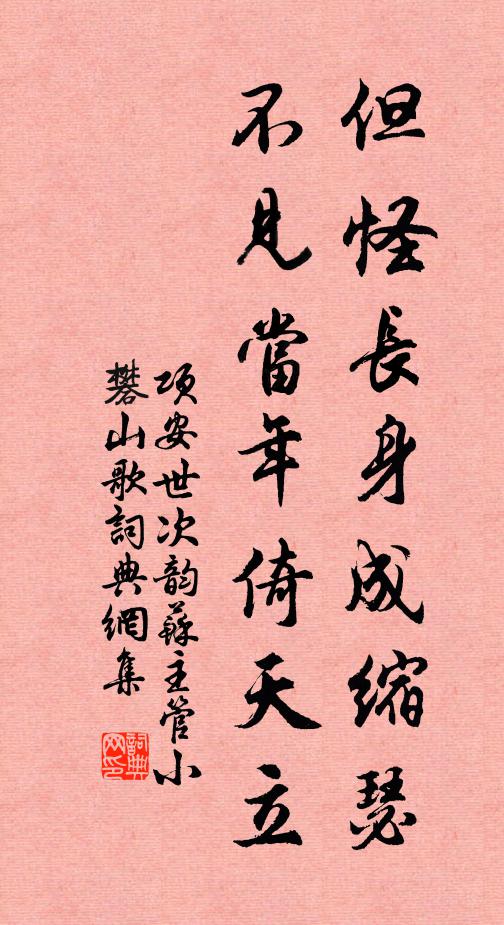 但怪長身成缩瑟
不見當年倚天立
項安世次韵蘇主管小
礬山歌詞典網集
詞典網印